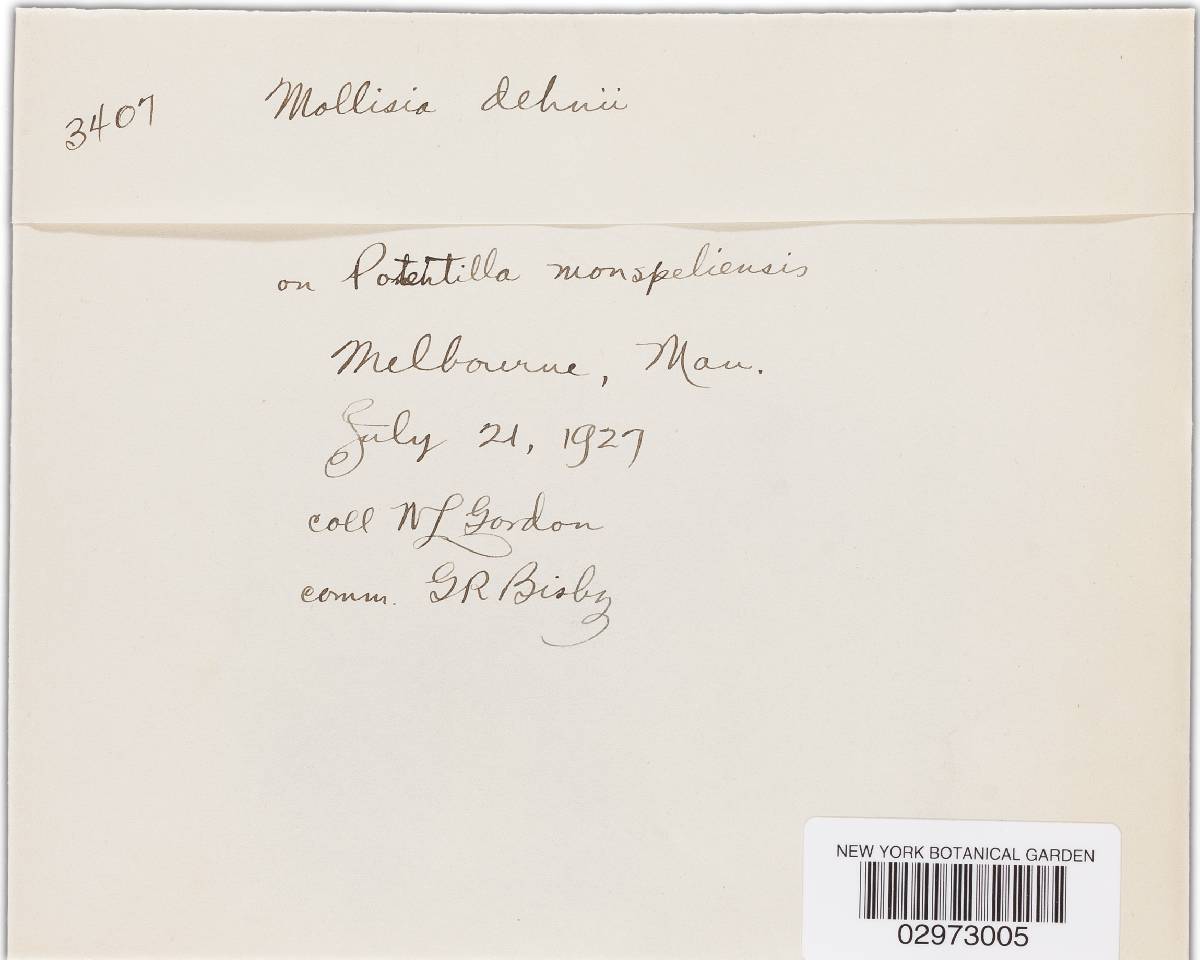 3407 Mollisia dehnii
on Potentilla monspeliensis
Melbourne, Man.
July 21, 1927
coll WL Gordon
comm. GR Bisby
NEW YORK BOTANICAL GARDEN
02973005